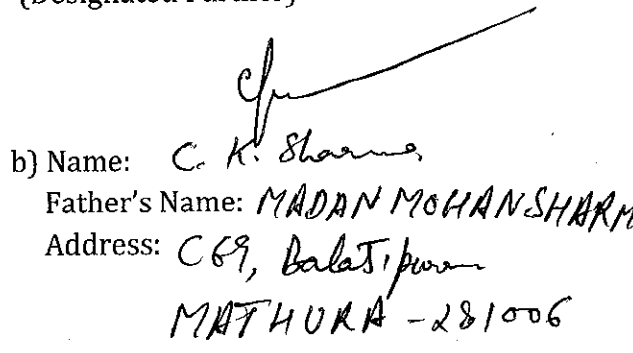 (Designated Partner)
b) Name: C. K. Sharma
Father's Name: MADAN MOHAN SHARM
Address: C 69, Balajipuram
MATHURA - 281006